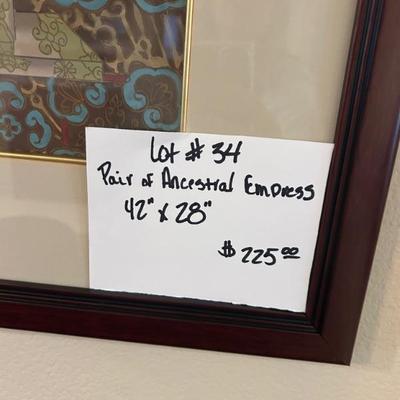 Lot # 34
Pair of Ancestral Empress
42" x 28"
$ 225.00